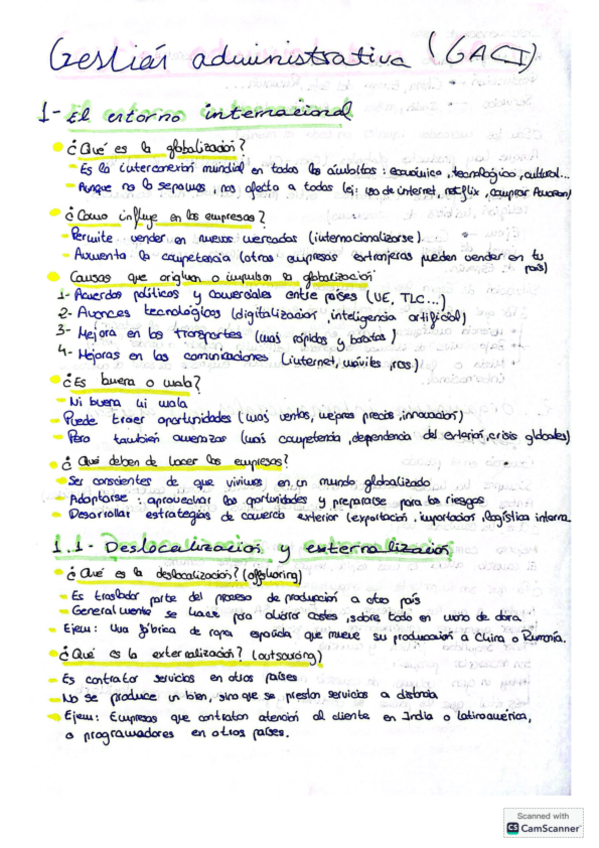 Gestión administrativa (GACI)
1- El entorno internacional
¿Qué es la globalización?
- Es la interconexión mundial en todos los ámbitos: económica, tecnológico, cultural...
- Aunque no lo sepamos, nos afecta a todos (ej: uso de internet, netflix, comprar Amazon)
¿Como influye en las empresas?
- Permite vender en nuevos mercados (internacionalizarse).
- Aumenta la competencia (otras empresas extranjeras pueden vender en tu país)
Causas que originan o impulsan la globalización
1- Acuerdos políticos y comerciales entre países (UE, TLC...)
2- Avances tecnológicos (digitalización, inteligencia artificial)
3- Mejora en los transportes (más rápidos y baratos)
4- Mejoras en las comunicaciones (internet, móviles, rrss.)
¿Es buena o mala?
- Ni buena ni mala
- Puede traer oportunidades (más ventas, mejores precios, innovación)
- Pero también amenazas (más competencia, dependencia del exterior, crisis globales)
¿Qué deben de hacer las empresas?
- Ser conscientes de que vivimos en un mundo globalizado
- Adaptarse: aprovechar las oportunidades y prepararse para los riesgos
- Desarrollar estrategias de comercio exterior (exportación, importación, logística interna.
1.1- Deslocalización y externalización
¿Qué es la deslocalización? (offshoring)
- Es trasladar parte del proceso de producción a otro país
- Generalmente se hace para ahorrar costes, sobre todo en mano de obra.
- Ejem: Una fábrica de ropa española que mueve su producción a China o Rumanía.
¿Qué es la externalización? (outsourcing)
- Es contratar servicios en otros países
- No se produce un bien, sino que se prestan servicios a distancia
- Ejem: Empresas que contratan atención al cliente en India o Latinoamérica,
o programadores en otros países.
Scanned with
CS CamScanner